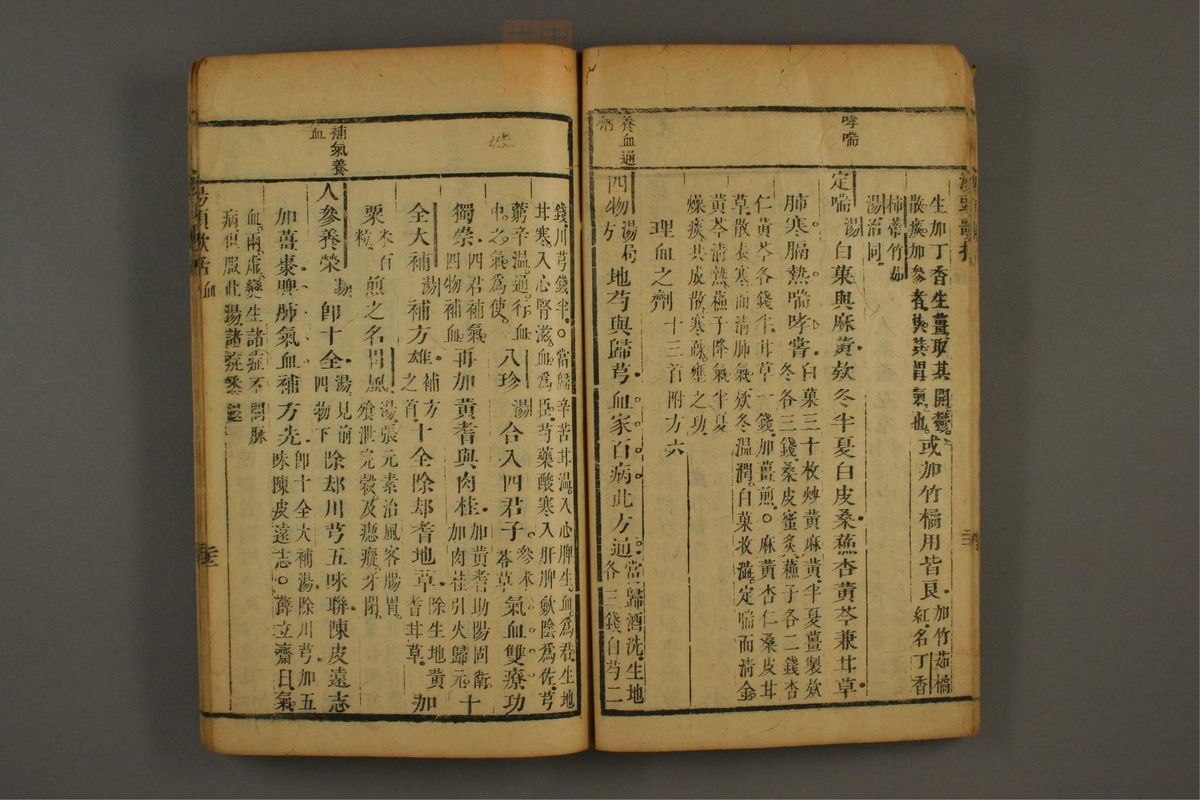 哮喘
養血通
劑
生加丁香生薑取其開鬱
散痰加參者扶其胃氣也
或加竹橘用皆良
加竹茹橘
紅名丁香
柿蒂竹茹
湯治同
定喘湯白菓與麻黃欵冬半夏白皮桑蘇杏黃芩兼甘草
肺寒膈熱喘哮嘗
白菓三十枚炒黃麻黃半夏薑製欵
冬各三錢桑皮蜜炙蘇子各二錢杏
仁黃芩各錢半甘草一錢加薑煎○麻黃杏仁桑皮甘
草散表寒而清肺氣欵冬溫潤白菓收澀定喘而清金
黃芩清熱蘇子降氣半夏
燥痰共成散寒疏壅之功
理血之劑十三首附方六
四物湯
局
方
地芍與歸芎血家百病此方通
當歸酒洗生地
各三錢白芍二
補氣養
血
錢川芎錢半○當歸辛苦甘溫入心脾生血爲君生地
甘寒入心腎滋血爲臣芍藥酸寒入肝脾歛陰爲佐芎
藭辛溫通行血
中之氣爲使
八珍湯合入四君子
參朮
苓草
氣血雙療功
獨崇
四君補氣
四物補血
再加黃耆與肉桂
加黃耆助陽固衛
加肉桂引火歸元
十
全大補湯補方雄
補方
之首
十全除却耆地草
除生地黃
耆甘草
加
粟
米百
粒
煎之名胃風
湯張元素治風客腸胃
飱泄完穀及瘛瘲牙閉
人參養榮湯卽十全
湯見前
四物下
除却川芎五味聯陳皮遠志
加薑棗脾肺氣血補方先
卽十全大補湯除川芎加五
味陳皮遠志○薛立齋曰氣
血兩虛變生諸症不問脉
病但服此湯諸症悉退
湯頭歌括
血